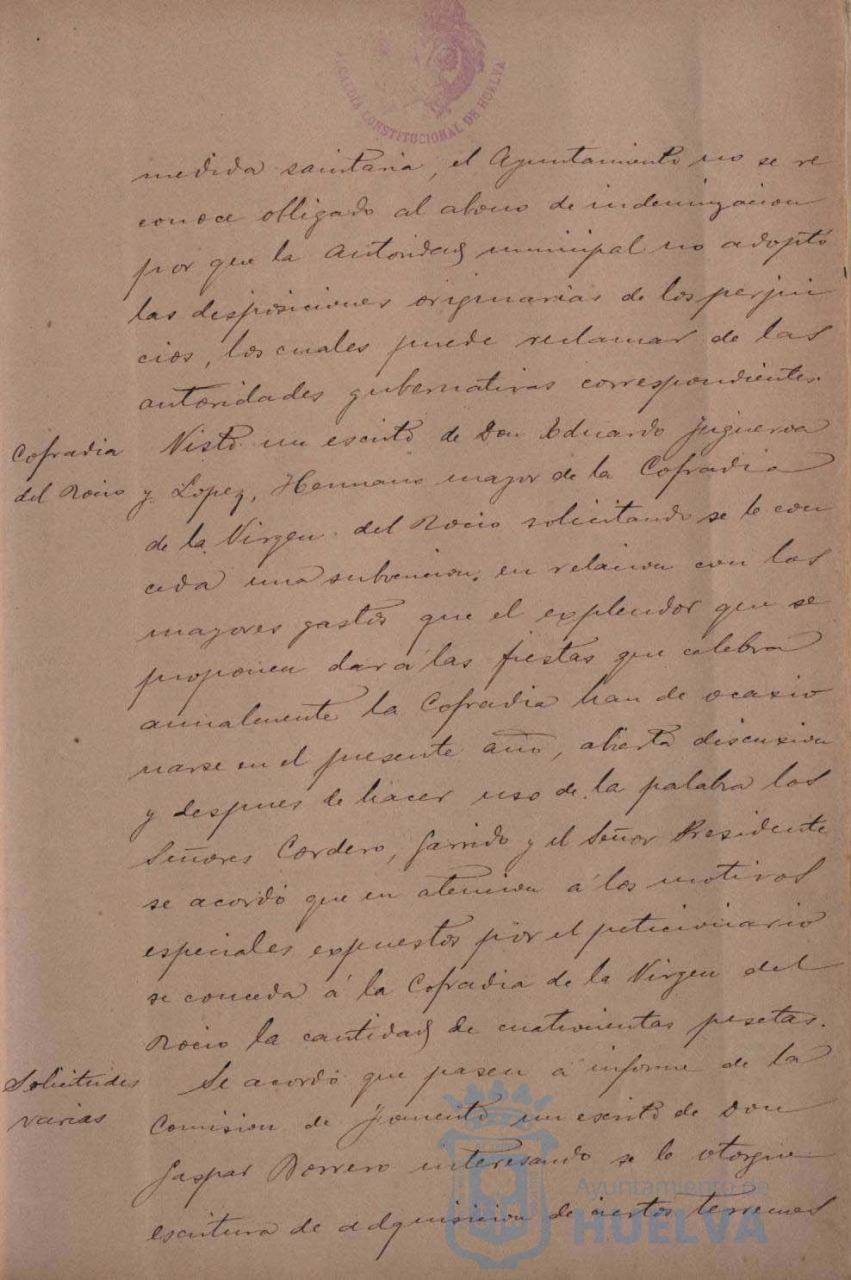 ALCALDÍA CONSTITUCIONAL DE HUELVA
medida sanitaria, el Ayuntamiento no se re
conoce obligado al abono de indemnizacion
por que la Autoridad municipal no adoptó
las disposiciones originarias de los perjui
cios, los cuales puede reclamar de las
autoridades gubernativas correspondientes.
Cofradia
del Rocio
Visto un escrito de Don Eduardo Figueroa
y Lopez, Hermano mayor de la Cofradia
de la Virgen del Rocio solicitando se le con
ceda una subvencion en relacion con los
mayores gastos que el explendor que se
proponen dar á las fiestas que celebra
anualmente la Cofradia han de ocasio
narse en el presente año, abierta discusion
y despues de hacer uso de la palabra los
Señores Cordero, Garrido y el Señor Presidente
se acordó que en atencion á los motivos
especiales expuestos por el peticionario
se conceda á la Cofradia de la Virgen del
Rocio la cantidad de cuatrocientas pesetas.
Solicitudes
varias
Se acordó que pasen á informe de la
Comision de Fomento un escrito de Don
Gaspar Borrero interesando se le otorgue
escritura de adquisicion de ciertos terrenos
Ayuntamiento de
HUELVA